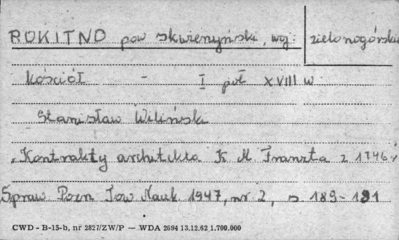 ROKITNO pow skwierzyński, woj: zielonogórskie
Kościół - I poł XVIII w
Stanisław Wiliński
"Kontrakty architekta K. M. Frantza z 1746 r
Spraw Pozn Tow Nauk 1947, nr 2, s 189-191
CWD - B-15-b, nr 2827/ZW/P — WDA 2694 13.12.62 1.700.000